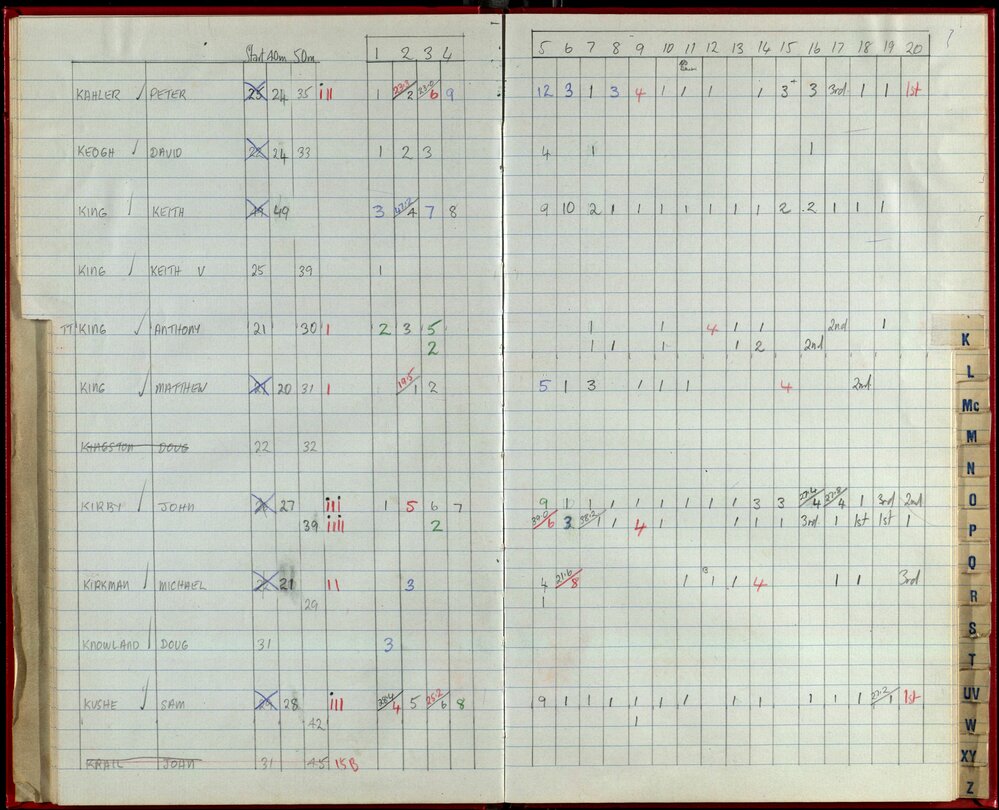 Start 40m 50m 1 2 3 4 5 6 7 8 9 10 11 12 13 14 15 16 17 18 19 20
KAHLER ✓ PETER 25 24 35 III 1 2 6 9 12 3 1 3 4 1 1 1 1 3 3 3rd 1 1 1st
KEOGH ✓ DAVID 24 33 1 2 3 4 1 1
KING ✓ KEITH 49 3 47.2 4 7 8 9 10 2 1 1 1 1 1 1 1 2 2 1 1 1
KING ✓ KEITH V 25 39 1
TT KING ✓ ANTHONY 21 30 I 2 3 5 1 1 4 1 1 2nd 1
2 1 1 1 1 2 2nd
KING ✓ MATTHEW 21 20 31 I 19.5 1 2 5 1 3 1 1 1 4 2nd
KINGSTON DOUG 22 32
KIRBY ✓ JOHN 27 III 1 5 6 7 9 1 1 1 1 1 1 1 1 3 3 27.4 4 27.8 4 1 3rd 2nd
39 IIII 2 39.0 6 3 38.2 1 1 4 1 1 1 3rd 1 1st 1st 1
KIRKMAN ✓ MICHAEL 21 II 3 4 21.6 8 1 1 1 4 1 1 3rd
29 1
KNOWLAND ✓ DOUG 31 3
KUSHE ✓ SAM 28 III 28.4 4 5 25.2 6 8 9 1 1 1 1 1 1 1 1 1 1 1 27.2 1 1st
42 1
KRAIL JOHN 31 45 15B
K
L
Mc
M
N
O
P
Q
R
S
T
UV
W
XY
Z